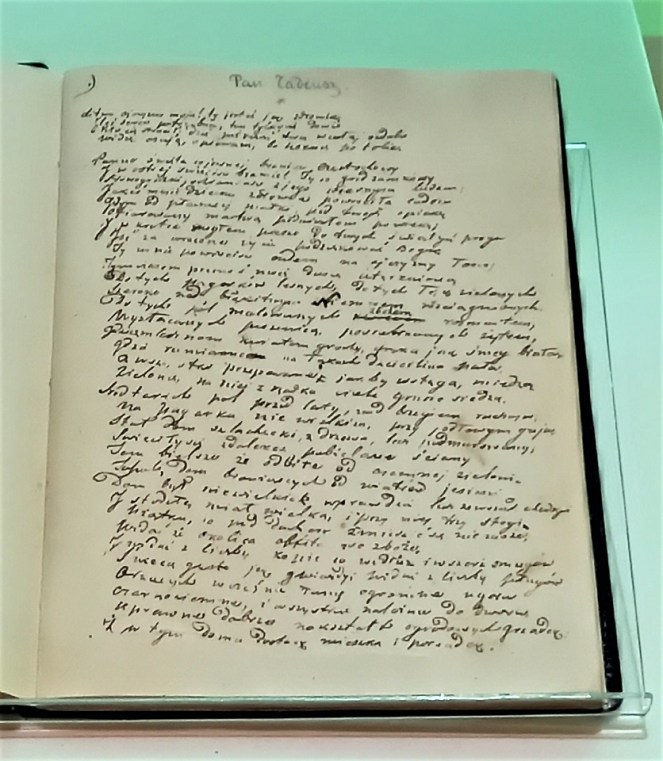 Litwo ojczyzno moja! ty jesteś jak zdrowie
potrzeba, ten tylko się dowie
Kto cię stracił. Dziś piękność twą w całej ozdobie
Widzę i opisuję, bo tęsknię po tobie
Panno święta co Jasnej bronisz Częstochowy
I w Ostrej świecisz Bramie! Ty co gród zamkowy
Nowogródzki ochraniasz z jego wiernym ludem;
Jak mnie dziecko do zdrowia powróciłaś cudem
Gdym od płaczącej matki pod Twoją opiekę
Ofiarowany martwą podniosłem powiekę;
I wkrótce mogłem pieszo do Twych świątyń progu
Iść za wrócone życie podziękować Bogu
Tak nas powrócisz cudem na ojczyzny łono;
Tymczasem przenoś moją duszę utęsknioną
Do tych pagórków leśnych, do tych łąk zielonych
Szeroko nad błękitnym Niemnem rozciągnionych.
Do tych pól malowanych zbożem rozmaitem,
Wyzłacanych pszenicą, posrebrzanych żytem,
gryka jak śnieg biała
Gdzie panieńskim na
A wszystko przepasane jakby wstęgą, miedzą
Zieloną, na niej z rzadka ciche grusze siedzą.
Śród takich pól przed laty, nad brzegiem ruczaju,
Na pagórku niewielkim,
Stał dom szlachecki, z drewna, lecz podmurowany;
Świeciły się z daleka pobielane ściany
Tem bielsze że odbite od ciemnej zieleni
Topoli, co go bronią od wiatrów jesieni
Dom był niewielki wprawdzie lecz zewsząd chędogi
I stodołę miał wielką, i przy niej trzy stogi
co pod dachem zmieścić się nie może,
Widać że okolica obfita we zboże,
I widać z liczby kopic co wzdłuż i wszerz smugów
Świecą gęsto jak gwiazdy widać z liczby pługów
Orzących wcześnie łany ogromne ugoru
Czarnoziemne, zapewne należne do dworu
Uprawne dobrze nakształt ogrodowych grządek.
Że w tym domu dostatek mieszka i porządek.
Pan Tadeusz